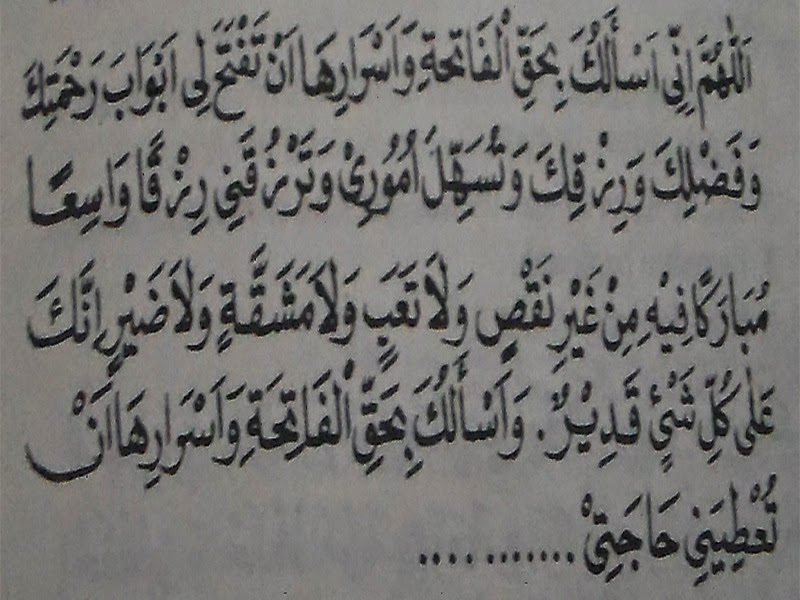 اَللّٰهُمَّ اِنِّى اَسْأَلُكَ بِحَقِّ الْفَاتِحَةِ وَاَسْرَارِهَا اَنْ تَفْتَحَ لِى اَبْوَابَ رَحْمَتِكَ
وَفَضْلِكَ وَرِزْقِكَ وَتُسَهِّلَ اُمُوْرِيْ وَتَرْزُقَنِي رِزْقًا وَاسِعًا
مُبَارَكًا فِيْهِ مِنْ غَيْرِ نَقْصٍ وَلَا تَعَبٍ وَلَا مَشَقَّةٍ وَلَا ضَيْرٍ اِنَّكَ
عَلٰى كُلِّ شَيْئٍ قَدِيْرٌ. وَاَسْأَلُكَ بِحَقِّ الْفَاتِحَةِ وَاَسْرَارِهَا اَنْ
تُعْطِيَنِي حَاجَتِيْ ...........